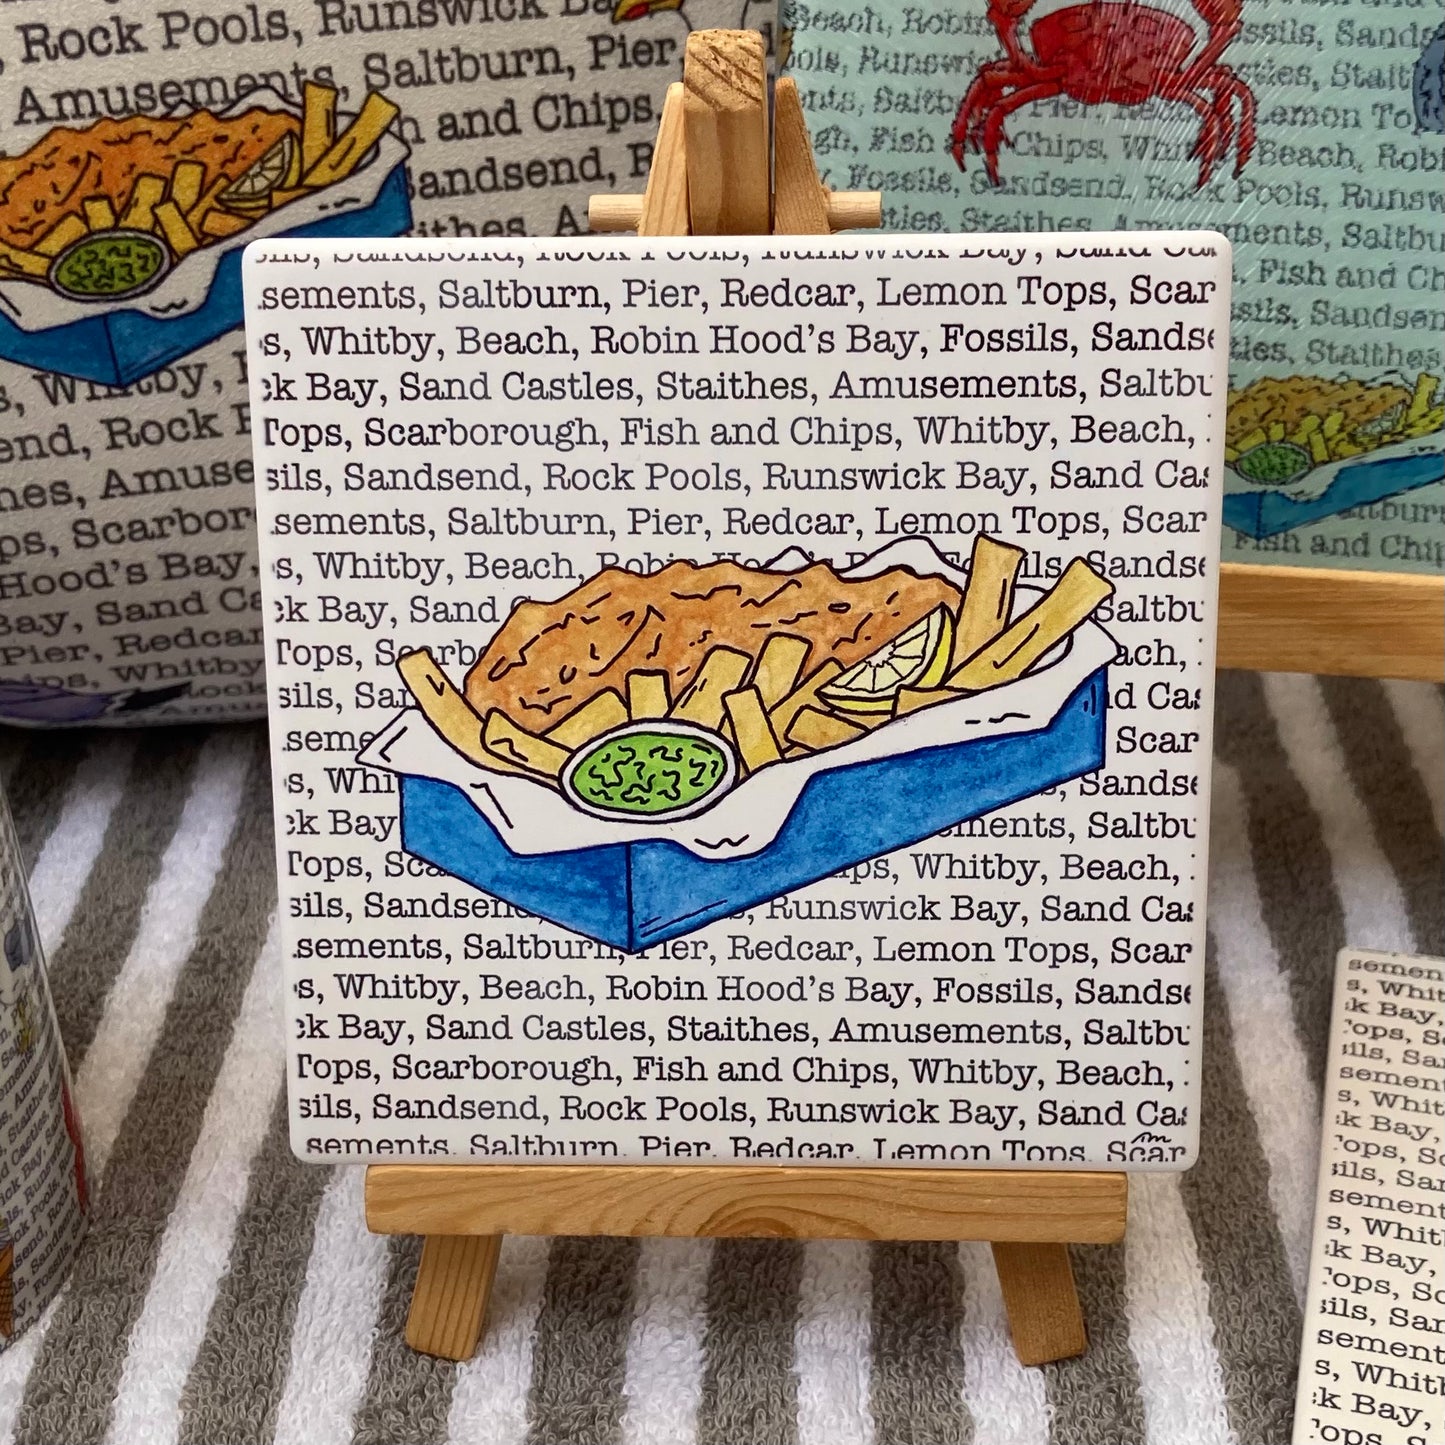 Rock Pools, Runswick
Amusements, Saltburn, Pier,
and Chips,
Sandsend,
Whitby,
Rock
Amuse
Scarbor
Hood's Bay,
Bay, Sand
Pier, Redcar
Whitby
Beach, Robin
Runswi
Chips,
Fossils, Sandsend, Rock Pools, Runsw
Staithes, Amusements, Saltbu
Fish and Ch
Sandsen
Staithes
Fish and Chip
Lemon To
Beach, Rob
sements, Saltburn, Pier, Redcar, Lemon Tops, Scar
s, Whitby, Beach, Robin Hood's Bay, Fossils, Sandse
ck Bay, Sand Castles, Staithes, Amusements, Saltbu
Tops, Scarborough, Fish and Chips, Whitby, Beach,
sils, Sandsend, Rock Pools, Runswick Bay, Sand Cas
sements, Saltburn, Pier, Redcar, Lemon Tops, Scar
s, Whitby, Beach, Robin Hood's Bay, Fossils, Sandse
ck Bay, Sand Saltbu
Tops, Scarbo ach,
sils, San d Cas
seme Scar
s, Whi , Sandse
ck Bay ments, Saltbu
Tops, Sca ips, Whitby, Beach,
sils, Sandsend, Runswick Bay, Sand Cas
sements, Saltburn, Pier, Redcar, Lemon Tops, Scar
s, Whitby, Beach, Robin Hood's Bay, Fossils, Sandse
ck Bay, Sand Castles, Staithes, Amusements, Saltbu
Tops, Scarborough, Fish and Chips, Whitby, Beach,
sils, Sandsend, Rock Pools, Runswick Bay, Sand Cas
sements, Saltburn, Pier, Redcar, Lemon Tops, Scar
semen
s, Whit
k Bay,
ops, Sc
ils, Sar
sement
s, Whit
k Bay,
ops, Sc
ils, Sar
sement
s, Whit
k Bay,
ops, Sc
ils, Sar
sement
s, Whith
k Bay,
ops,